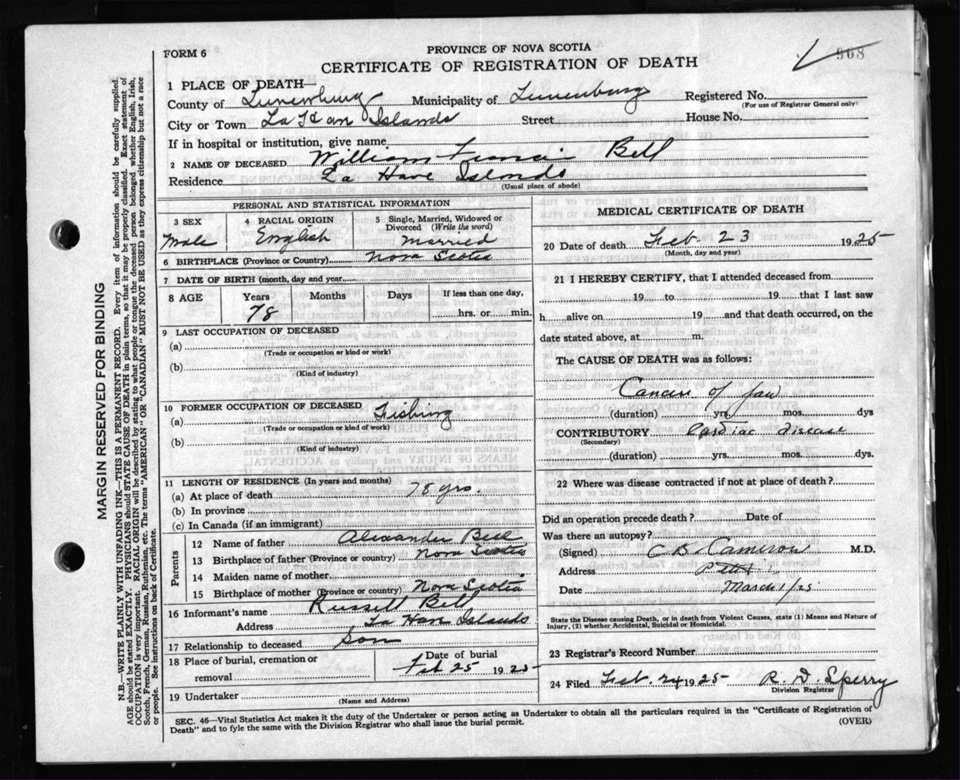 968
FORM 6
PROVINCE OF NOVA SCOTIA
CERTIFICATE OF REGISTRATION OF DEATH
1 PLACE OF DEATH—
County of Lunenburg Municipality of Lunenburg Registered No.
(For use of Registrar General only)
City or Town La Have Islands Street House No.
If in hospital or institution, give name
2 NAME OF DECEASED William Francis Bell
Residence La Have Islands
(Usual place of abode)
PERSONAL AND STATISTICAL INFORMATION
3 SEX
Male
4 RACIAL ORIGIN
English
5 Single, Married, Widowed or Divorced (Write the word)
Married
6 BIRTHPLACE (Province or Country) Nova Scotia
7 DATE OF BIRTH (month, day and year)
8 AGE Years Months Days If less than one day,
78 hrs. or min.
9 LAST OCCUPATION OF DECEASED
(a)
(Trade or occupation or kind or work)
(b)
(Kind of industry)
10 FORMER OCCUPATION OF DECEASED
(a) Fishing
(Trade or occupation or kind of work)
(b)
(Kind of industry)
11 LENGTH OF RESIDENCE (In years and months)
(a) At place of death 78 yrs.
(b) In province
(c) In Canada (if an immigrant)
Parents
12 Name of father Alexander Bell
13 Birthplace of father (Province or country) Nova Scotia
14 Maiden name of mother
15 Birthplace of mother (Province or country) Nova Scotia
16 Informant's name Russell Bell
Address La Have Islands
17 Relationship to deceased Son
18 Place of burial, cremation or removal
Date of burial
Feb 25 1925
19 Undertaker
(Name and Address)
MEDICAL CERTIFICATE OF DEATH
20 Date of death Feb. 23 1925
(Month, day and year)
21 I HEREBY CERTIFY, that I attended deceased from
19 to 19 that I last saw
h alive on 19 and that death occurred, on the
date stated above, at m.
The CAUSE OF DEATH was as follows:
Cancer of jaw
(duration) yrs. mos. dys
CONTRIBUTORY Cardiac disease
(Secondary)
(duration) yrs. mos. dys.
22 Where was disease contracted if not at place of death?
Did an operation precede death? Date of
Was there an autopsy?
(Signed) C B. Cameron M.D.
Address
Date March 1/25
State the Disease causing Death, or in death from Violent Causes, state (1) Means and Nature of
Injury, (2) whether Accidental, Suicidal or Homicidal.
23 Registrar's Record Number
24 Filed Feb. 24 1925 R. D. Sperry
Division Registrar
SEC. 46—Vital Statistics Act makes it the duty of the Undertaker or person acting as Undertaker to obtain all the particulars required in the "Certificate of Registration of
Death" and to fyle the same with the Division Registrar who shall issue the burial permit.
(OVER)
MARGIN RESERVED FOR BINDING
N.B.—WRITE PLAINLY WITH UNFADING INK—THIS IS A PERMANENT RECORD. Every item of information should be carefully supplied.
AGE should be stated EXACTLY. PHYSICIANS should STATE CAUSE OF DEATH in plain terms, so that it may be properly classified. Exact statement of
OCCUPATION is very important. RACIAL ORIGIN will be described by stating to what people or tongue the deceased person belonged whether English, Irish,
Scotch, French, German, Russian, Ruthenian, etc. The terms "AMERICAN" OR "CANADIAN" MUST NOT BE USED as they express citizenship but not a race
or people. See instructions on back of Certificate.